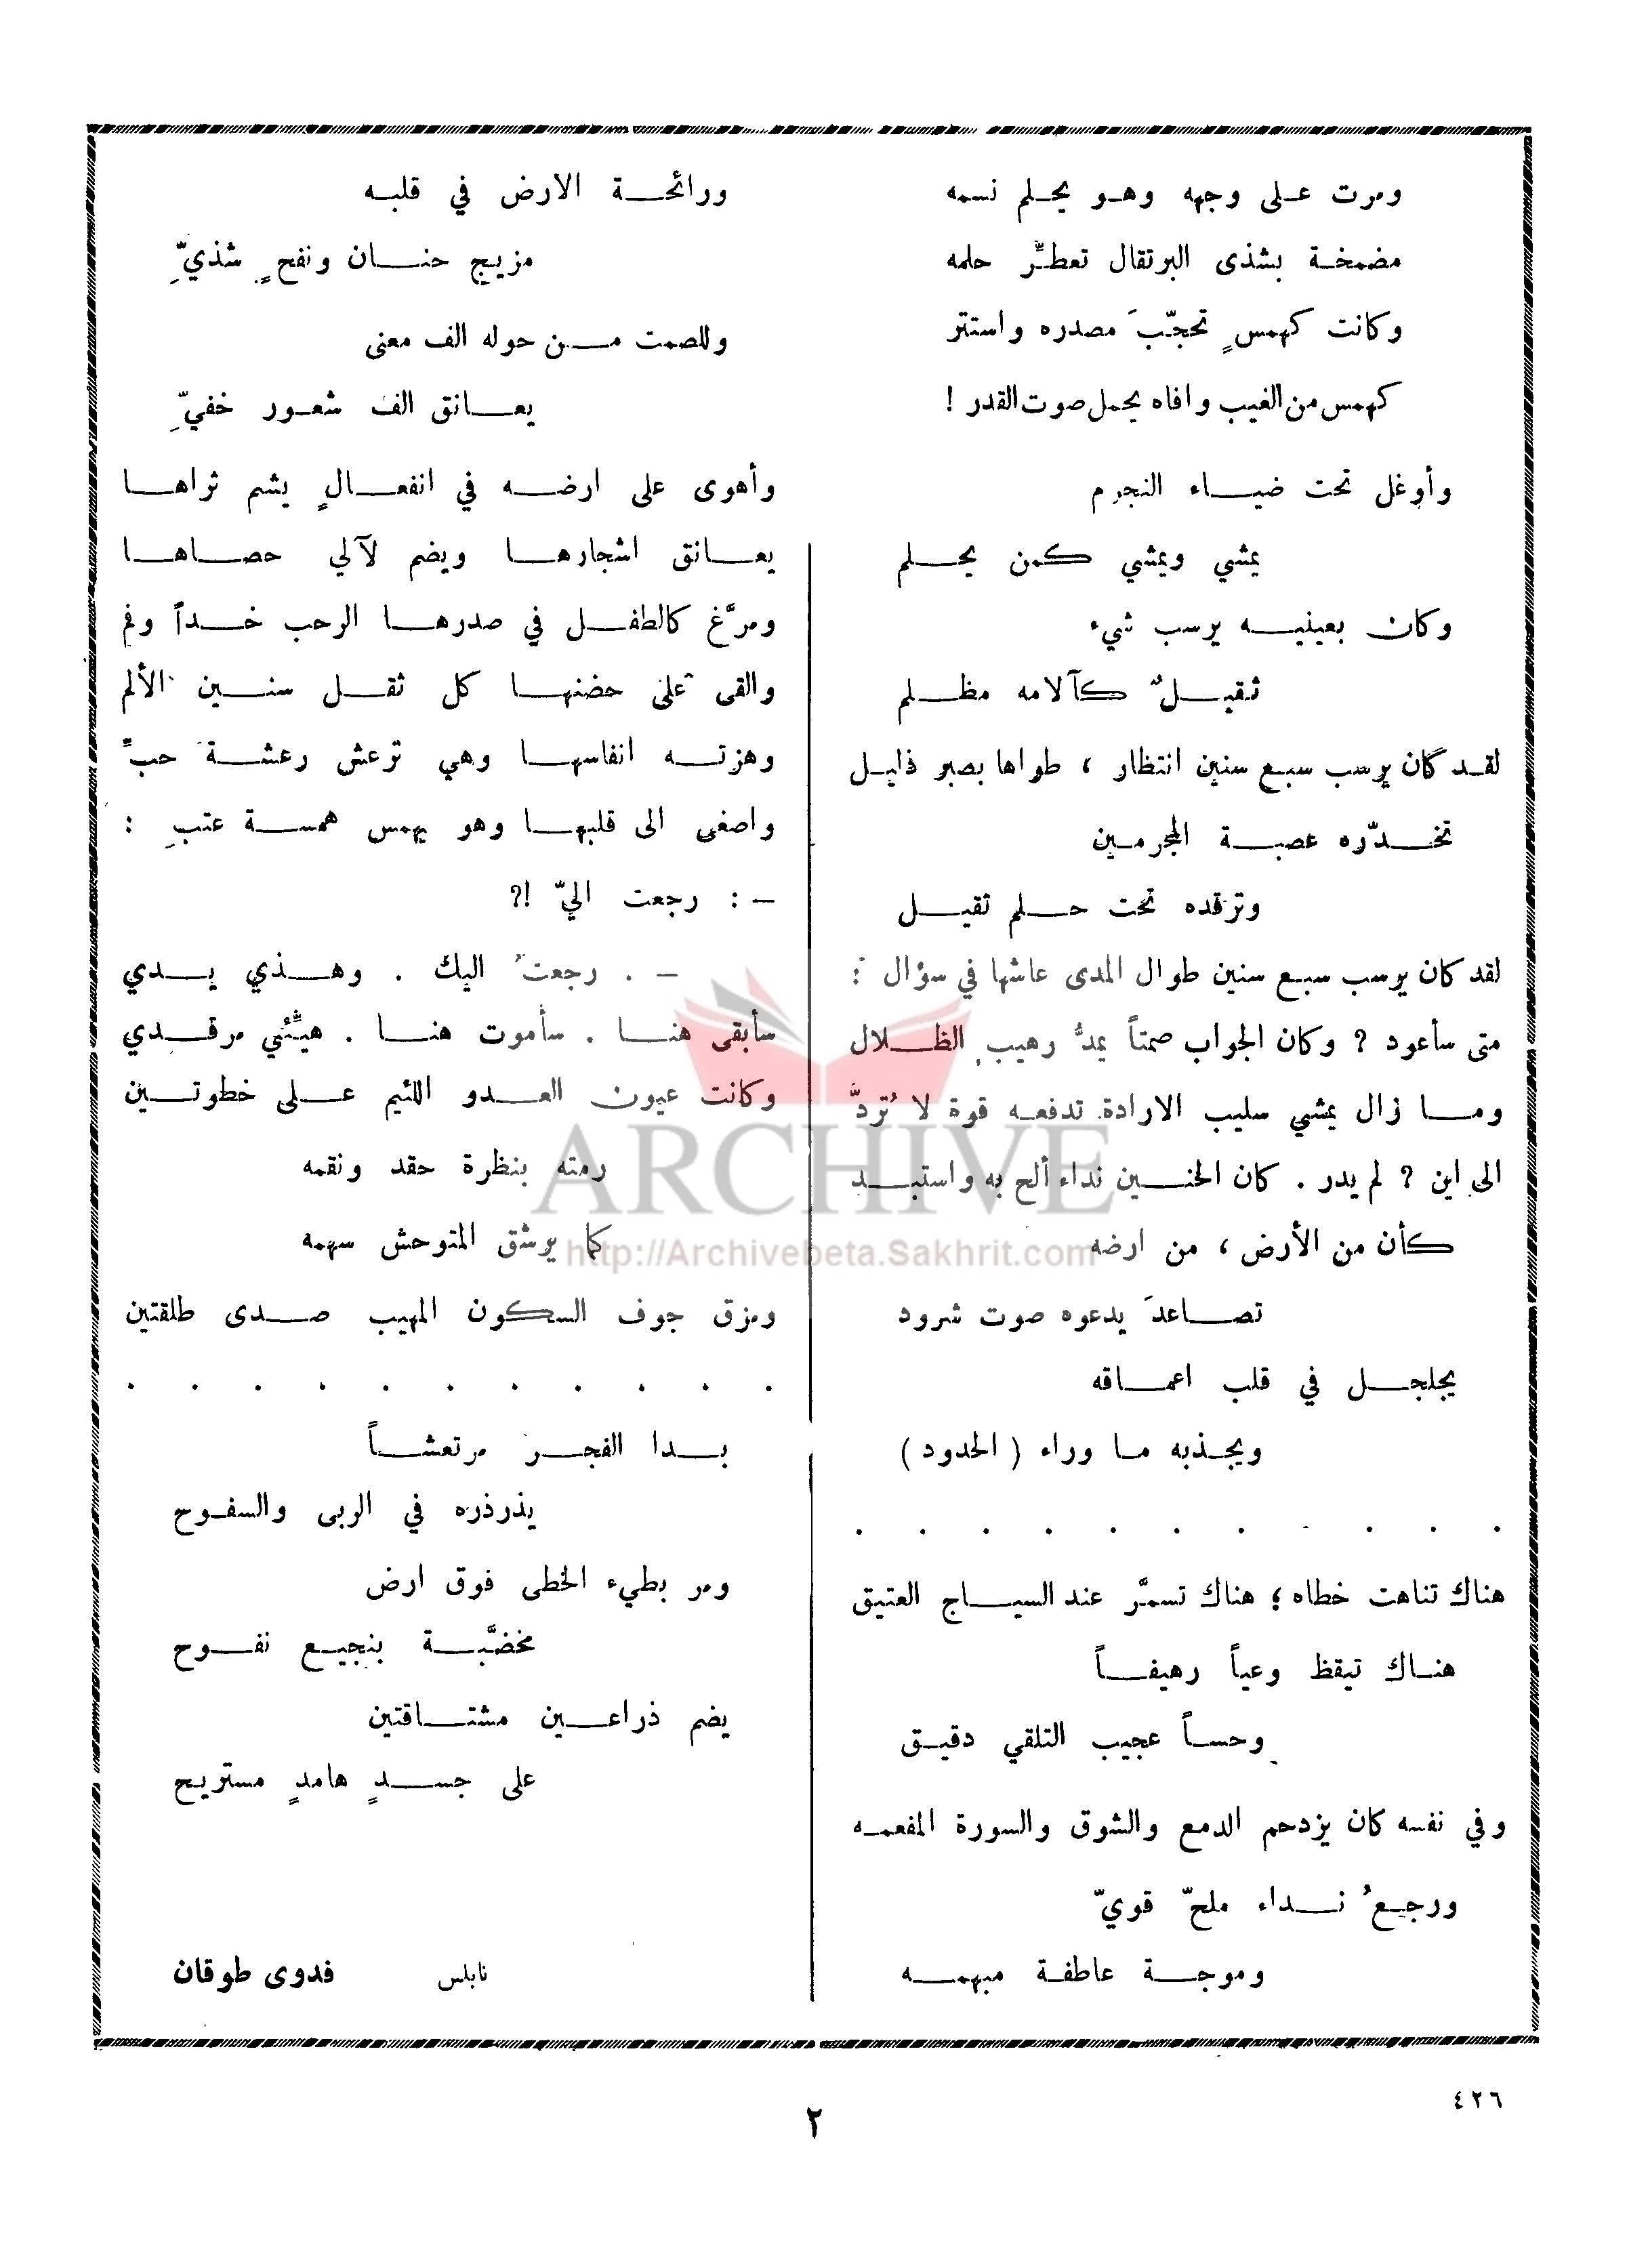 ومرت على وجهه وهو يحلم نسمه
مضمخة بشذى البرتقال تعطِّر حلمه
وكانت كهمسٍ تحجّبَ مصدره واستتر
كهمس من الغيب وافاه يحمل صوت القدر !
وأوغل تحت ضياء النجوم
يمشي ويمشي كمن يحلم
وكان بعينيه يرسب شيء
ثقيلٌ كآلامه مظلم
لقد كان يرسب سبع سنين انتظار ، طواها بصبر ذليل
تخدّره عصبة المجرمين
وترقده تحت حلم ثقيل
لقد كان يرسب سبع سنين طوال المدى عاشها في سؤال :
متى سأعود ? وكان الجواب صمتاً يمدُّ رهيب الظلال
وما زال يمشي سليب الارادة تدفعه قوة لا تُردَّ
الى اين ? لم يدر . كان الحنين نداء ألح به واستبد
كأن من الأرض ، من ارضه
تصاعدَ يدعوه صوت شرود
يجلجل في قلب اعماقه
ويجذبه ما وراء ( الحدود )
. . . . . . . . . . .
هناك تناهت خطاه ؛ هناك تسمَّر عند السياج العتيق
هناك تيقظ وعياً رهيفاً
وحساً عجيب التلقي دقيق
وفي نفسه كان يزدحم الدمع والشوق والسورة المفعمه
ورجعُ نداء ملحّ قويّ
وموجة عاطفة مبهمه
ورائحة الارض في قلبه
مزيج حنان ونفحٍ شذيِّ
وللصمت من حوله الف معنى
يعانق الف شعور خفيِّ
وأهوى على ارضه في انفعالٍ يشم ثراها
يعانق اشجارها ويضم لآلي حصاها
ومرَّغ كالطفل في صدرها الرحب خداً وفم
والقى على حضنها كل ثقل سنين الألم
وهزته انفاسها وهي ترعش رعشة حبِّ
واصغى الى قلبها وهو يهمس همسة عتبِ :
– : رجعت اليّ ?!
– . رجعتُ اليك . وهذي يدي
سأبقى هنا . سأموت هنا . هيِّئي مرقدي
وكانت عيون العدو اللئيم على خطوتين
رمته بنظرة حقد ونقمه
كما يرشق المتوحش سهمه
ومزق جوف السكون المهيب صدى طلقتين
. . . . . . . . . . .
بدا الفجر مرتعشاً
يذرذره في الربى والسفوح
ومر بطيء الخطى فوق ارض
مخضَّبة بنجيع نفوح
يضم ذراعين مشتاقتين
على جسدٍ هامدٍ مستريح
نابلس فدوى طوقان
ARCHIVE
http://Archivebeta.Sakhrit.com
٤٢٦
٢